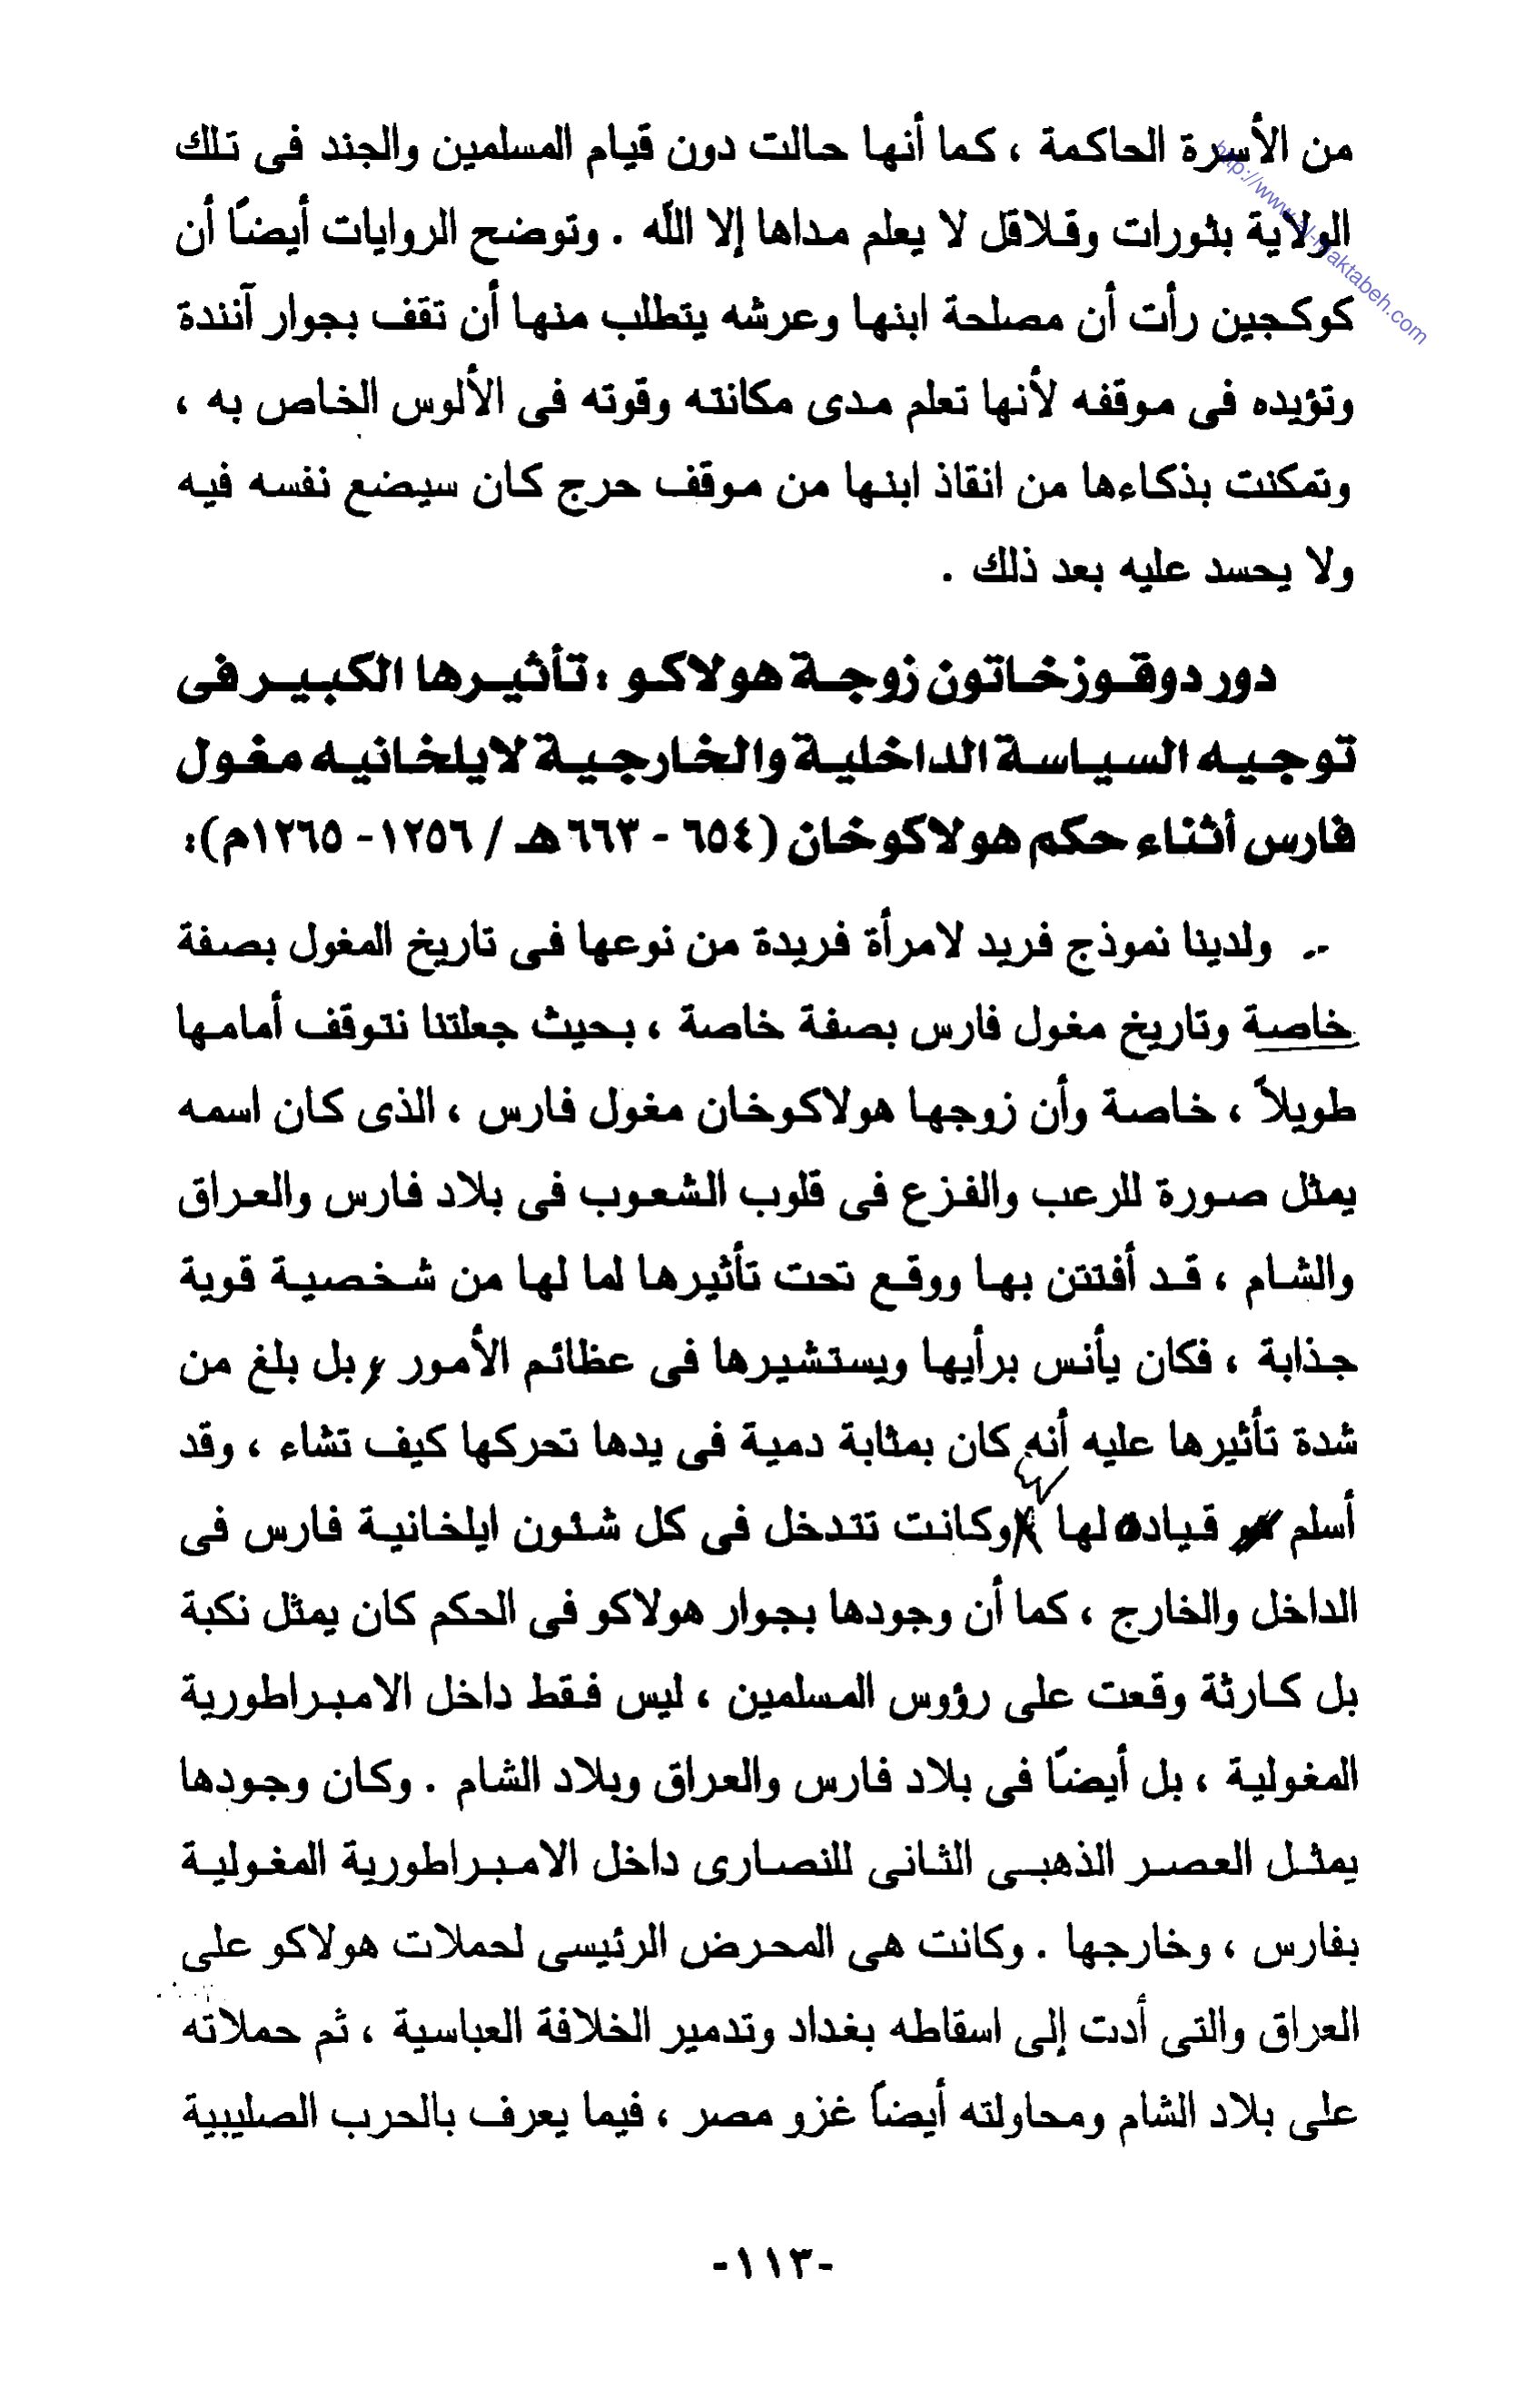 من الأسرة الحاكمة ، كما أنها حالت دون قيام المسلمين والجند فى تلك
الولاية بثورات وقلاقل لا يعلم مداها إلا الله . وتوضح الروايات أيضاً أن
كوكجين رأت أن مصلحة ابنها وعرشه يتطلب منها أن تقف بجوار آنندة
وتؤيده فى موقفه لأنها تعلم مدى مكانته وقوته فى الألوس الخاص به ،
وتمكنت بذكاءها من انقاذ ابنها من موقف حرج كان سيضع نفسه فيه
ولا يحسد عليه بعد ذلك .
دور دوقوز خاتون زوجة هولاكو : تأثيرها الكبير فى
توجيه السياسة الداخلية والخارجية لايلخانيه مغول
فارس أثناء حكم هولاكوخان (٦٥٤ - ٦٦٣هـ / ١٢٥٦- ١٢٦٥م):
ولدينا نموذج فريد لامرأة فريدة من نوعها فى تاريخ المغول بصفة
خاصة وتاريخ مغول فارس بصفة خاصة ، بحيث جعلتنا نتوقف أمامها
طويلاً ، خاصة وأن زوجها هولاكوخان مغول فارس ، الذى كان اسمه
يمثل صورة للرعب والفزع فى قلوب الشعوب فى بلاد فارس والعراق
والشام ، قد أفتتن بها ووقع تحت تأثيرها لما لها من شخصية قوية
جذابة ، فكان يأنس برأيها ويستشيرها فى عظائم الأمور ، بل بلغ من
شدة تأثيرها عليه أنه كان بمثابة دمية فى يدها تحركها كيف تشاء ، وقد
أسلم قياده لها وكانت تتدخل فى كل شئون ايلخانية فارس فى
الداخل والخارج ، كما أن وجودها بجوار هولاكو فى الحكم كان يمثل نكبة
بل كارثة وقعت على رؤوس المسلمين ، ليس فقط داخل الامبراطورية
المغولية ، بل أيضاً فى بلاد فارس والعراق وبلاد الشام . وكان وجودها
يمثل العصر الذهبى الثانى للنصارى داخل الامبراطورية المغولية
بفارس ، وخارجها . وكانت هى المحرض الرئيسى لحملات هولاكو على
العراق والتى أدت إلى اسقاطه بغداد وتدمير الخلافة العباسية ، ثم حملاته
على بلاد الشام ومحاولته أيضاً غزو مصر ، فيما يعرف بالحرب الصليبية
-١١٣-
http://www.al-maktabeh.com